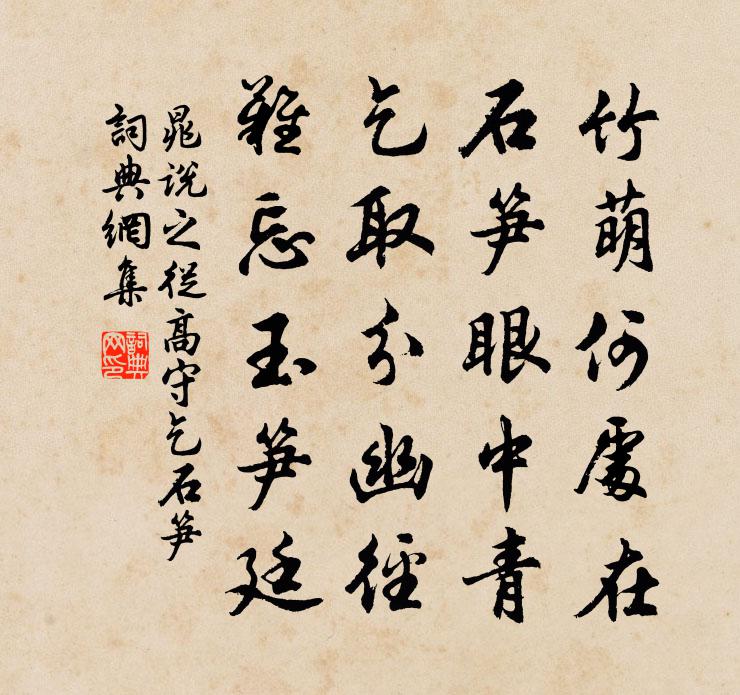 竹萌何處在
石笋眼中青
乞取分幽徑
難忘玉笋廷
晁說之從高守乞石笋
詞典網集
詞典網印